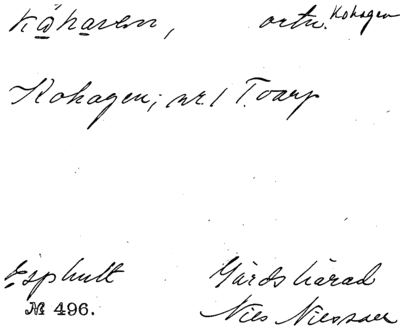 Kohagen
ortn.
Kohagen; nr. 1 Toarp
Esphult Gärds härad
№ 496. Nils Nilsson